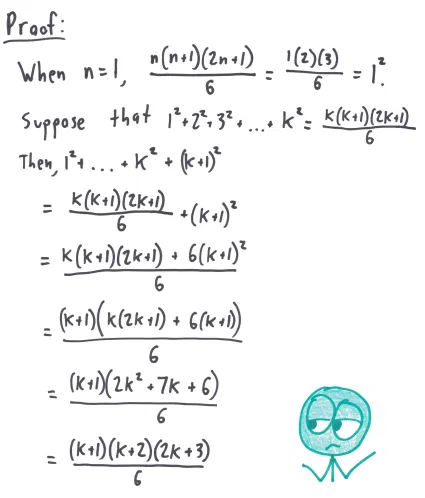 Proof:
When n=1, n(n+1)(2n+1)/6 = 1(2)(3)/6 = 1².
Suppose that 1²+2²+3²+...+k² = k(k+1)(2k+1)/6
Then, 1²+...+k²+(k+1)²
= k(k+1)(2k+1)/6 +(k+1)²
= k(k+1)(2k+1) + 6(k+1)²/6
= (k+1)(k(2k+1) + 6(k+1))/6
= (k+1)(2k²+7k+6)/6
= (k+1)(k+2)(2k+3)/6